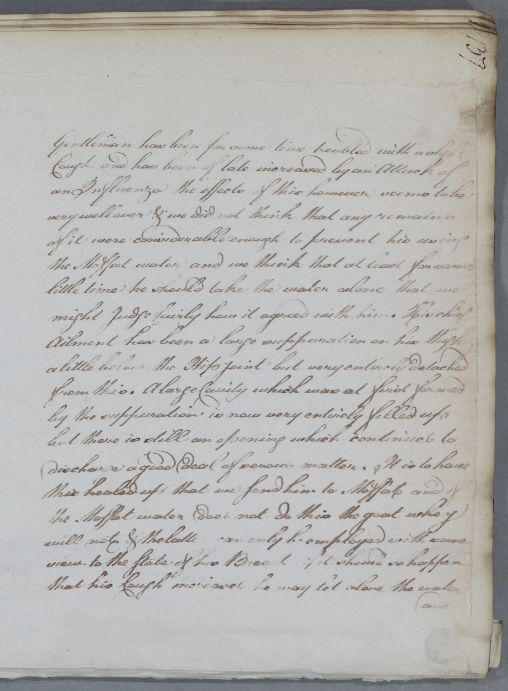 137
Gentleman has been for some time troubled with a slight
Cough and has been of late increased by an Attack of
an Influenza the effects of this however seems to be
very well over & we did not think that any remains
of it were considerable enough to prevent his using
the Moffat water and we think that at least for some
little time he should take the water alone that we
might Judge fairly how it agreed with him. His chief
Ailment has been a large suppuration on his thigh
a little below the Hip joint but very entirely detached
from this. A large Cavity which was at first formed
by the suppuration is now very entirely filled up
but there is still an opening which continues to
discharge a good deal of serous matter. It is to have
this healed up that we send him to Moffat and if
the Moffat water does not do this the goat whey
will not & the latter can only be employed with some
view to the State of his Breast if it should so happen
that his Cough increases he may let alone the water
and